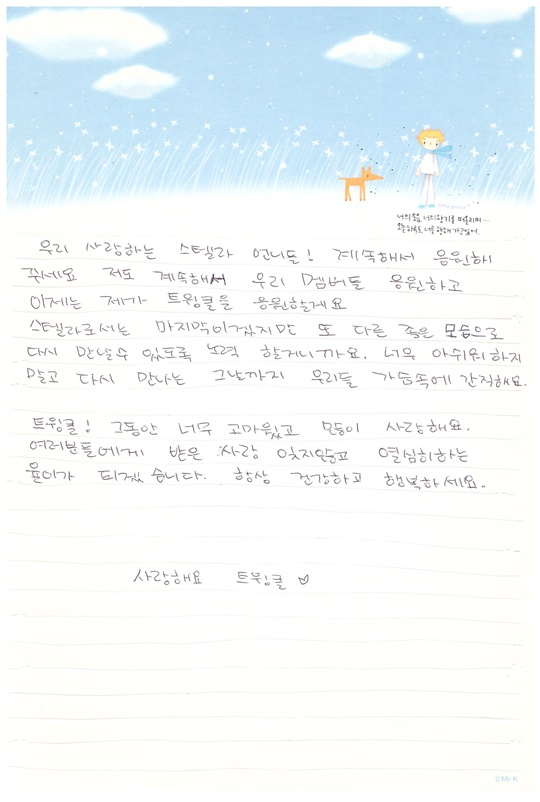 너의 웃음 너의 향기를 떠올리며...
오늘 하루도 너를 향해 가고있어.
우리 사랑하는 스텔라 언니들! 계속해서 응원해
주세요 저도 계속해서 우리 멤버들 응원하고
이제는 제가 트윙클을 응원할게요
스텔라로서는 마지막이겠지만 또 다른 좋은 모습으로
다시 만날수 있도록 노력 할거니까요. 너무 아쉬워하지
말고 다시 만나는 그날까지 우리들 가슴속에 간직해요.
트윙클! 그동안 너무 고마웠고 많이 사랑해요.
여러분들에게 받은 사랑 잊지않고 열심히하는
율이가 되겠습니다. 항상 건강하고 행복하세요.
사랑해요 트윙클 ♡
©Mr.K